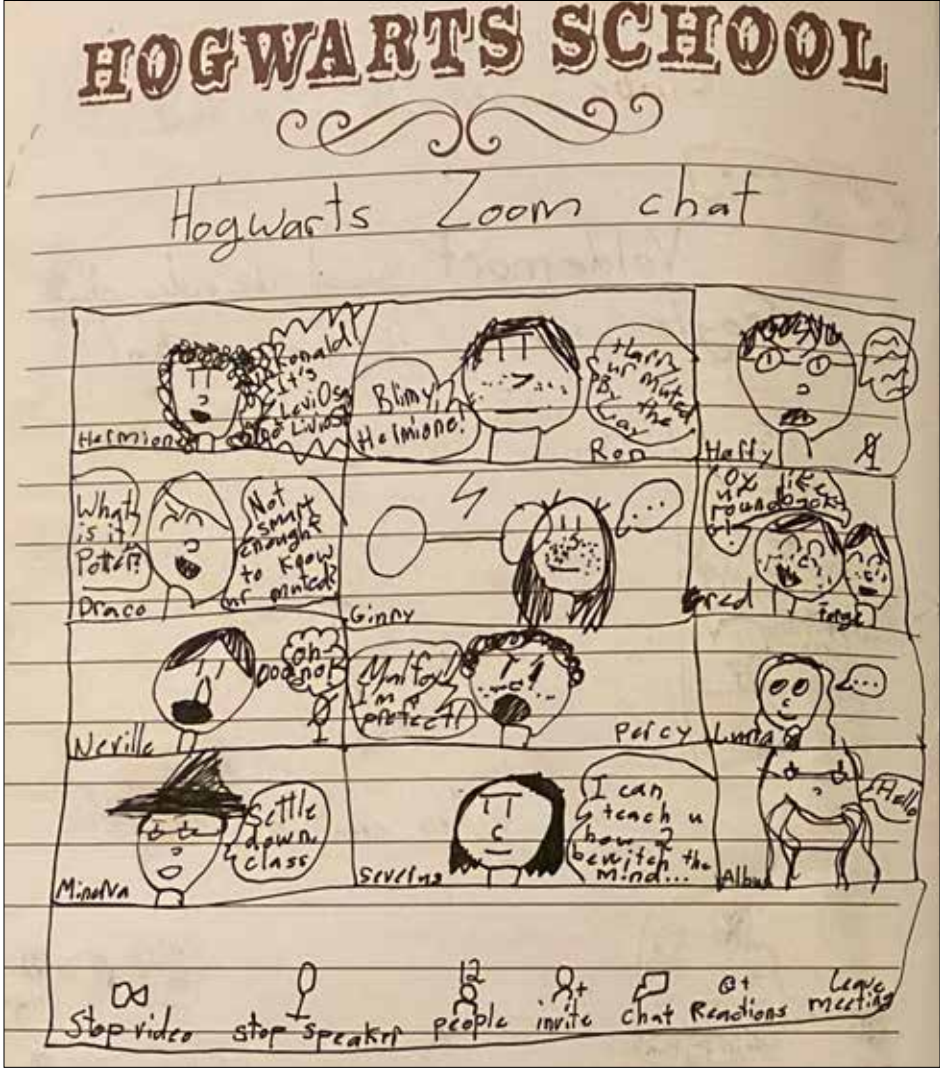 HOGWARTS SCHOOL
Hogwarts Zoom chat
Ronald!
It's
LeviOsa
not Liviosa
Hermione
Blimy,
Hermione!
Harry
ur muted
By the
way
Ron
Harry
What
is it,
Potter?
Not
smart
enough
to know
ur muted?
Draco
...
Ginny
ur
Fred
Forge
oh
no!
Neville
Malfoy!
I'm a
prefect!
Percy
...
Luna
Settle
down,
class
Minerva
I can
teach u
how 2
bewitch the
mind...
Severus
Hello
Albus
Stop video
stop speaker
12
people
invite
chat
Reactions
Leave
meeting